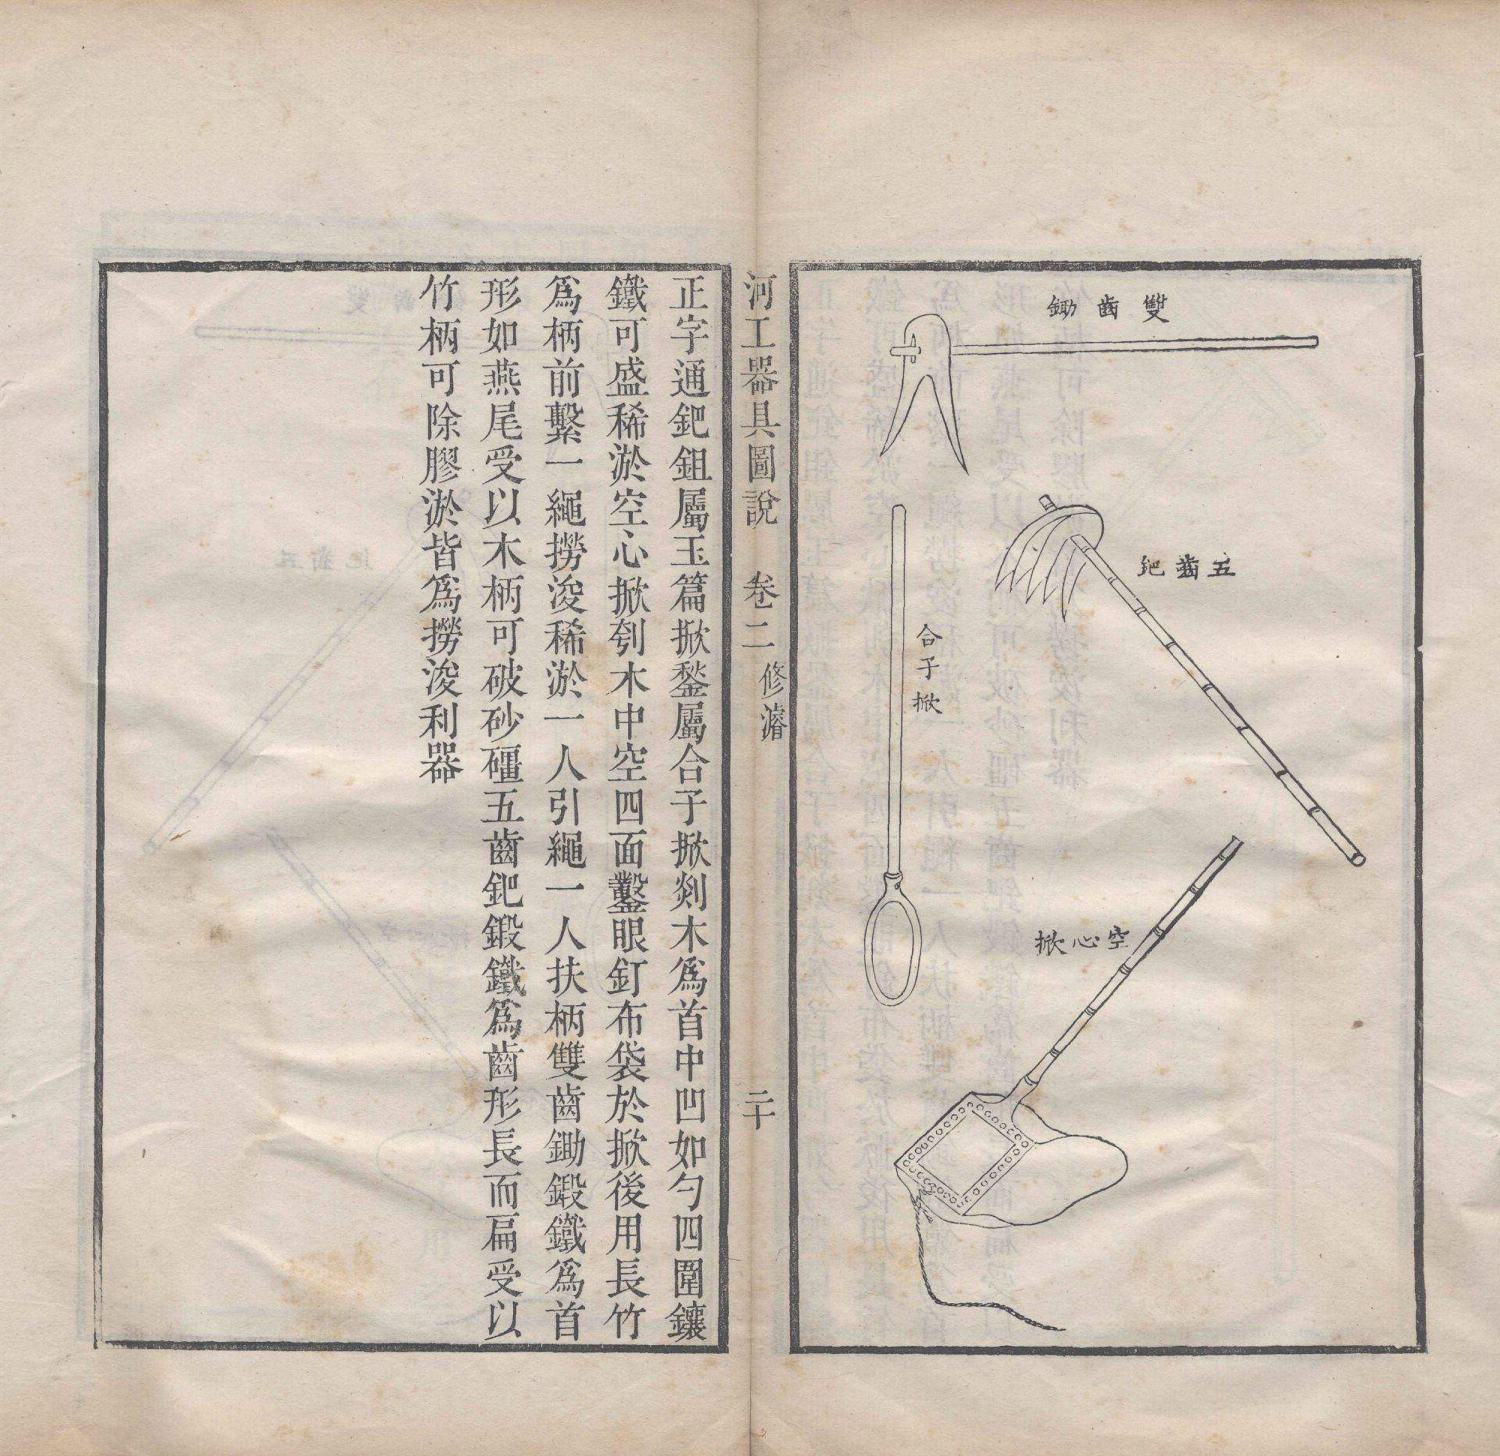 雙齒鋤
五齒鈀
合子掀
空心掀
河工器具圖說 卷二 修濬 二十
正字通鈀鉏屬玉篇掀鍫屬合子掀剡木爲首中凹如勺四圍鑲
鐵可盛稀淤空心掀刳木中空四面鑿眼釘布袋於掀後用長竹
爲柄前繫一繩撈浚稀淤一人引繩一人扶柄雙齒鋤鍛鐵爲首
形如燕尾受以木柄可破砂礓五齒鈀鍛鐵爲齒形長而扁受以
竹柄可除膠淤皆爲撈浚利器